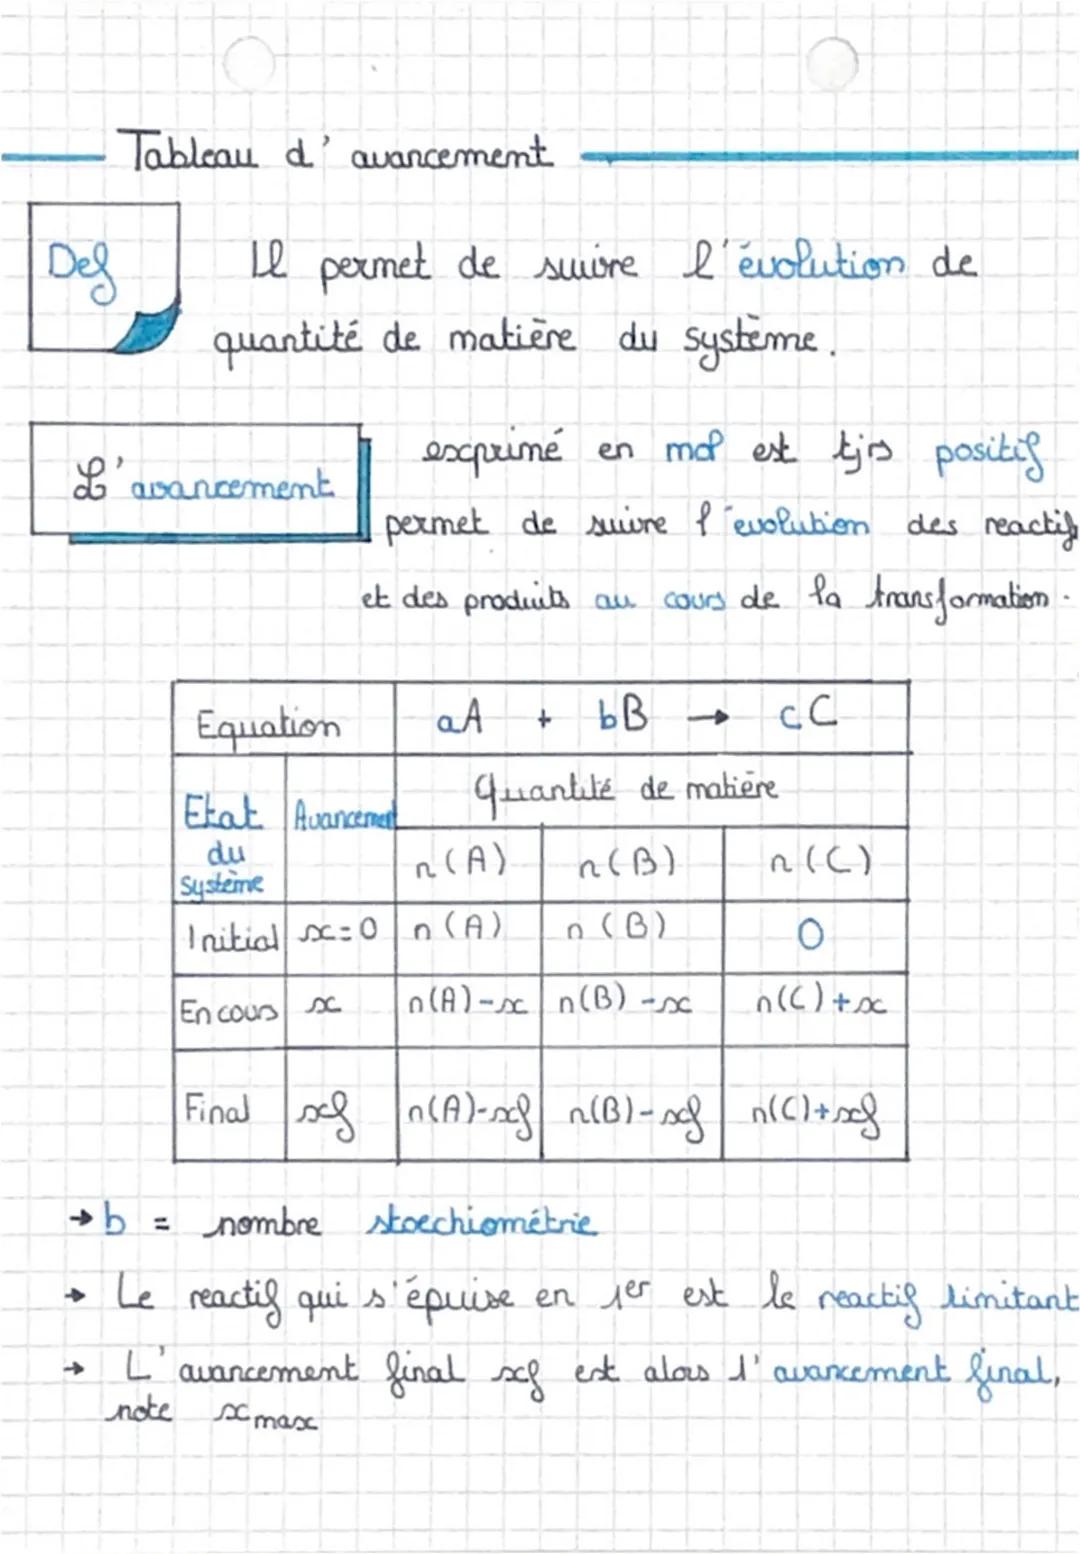 Tableau d'avancement
Def
Il permet de suivre l'évolution de
quantité de matière du système.
L'avancement
exprimé en mol est tjrs positif
permet de suivre l'evolution des reactifs
et des produits au cours de la transformation.
Equation aA + bB → cC
Etat du système Avancement Quantité de matière
n(A) n(B) n(C)
Initial x=0 n(A) n(B) 0
En cours x n(A)-x n(B)-x n(C)+x
Final xf n(A)-xf n(B)-xf n(C)+xf
→ b = nombre stoechiométrie
→ Le reactif qui s'épuise en 1er est le reactif limitant
→ L'avancement final xf est alors l'avancement final,
note xmax